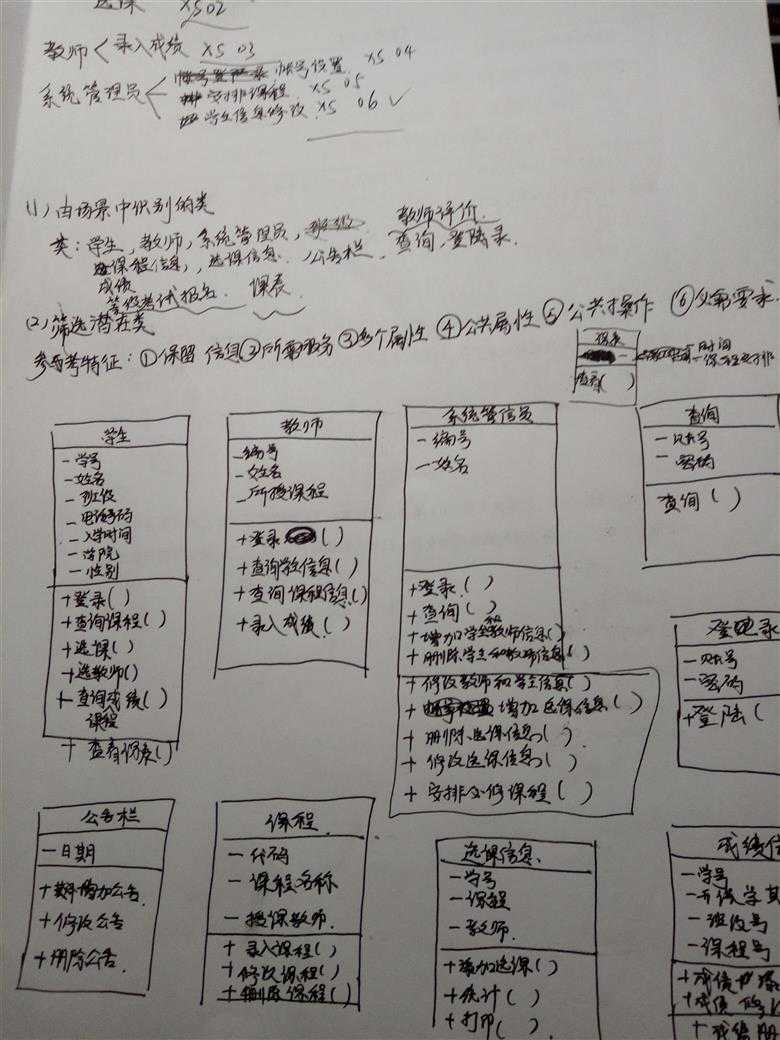 选课 XS02
教师 < 录入成绩 XS 03
系统管理员 < 帐号设置 XS 04
安排课程 XS 05
学生信息修改 XS 06 ✓
(1) 由场景中识别的类
类：学生，教师，系统管理员，教师评价
课程信息，选课信息，公告栏，查询，登陆录
成绩
等级考试报名 课表
(2) 筛选潜在类
参考特征：①保留信息②所需服务③多个属性④公共属性⑤公共操作⑥必需要求
课表
-时间
-课程安排
查看( )
学生
-学号
-姓名
-班级
-电话号码
-入学时间
-学院
-性别
+登录( )
+查询课程( )
+选课( )
+选教师( )
+查询成绩( )
课程
+查看课表( )
教师
-编号
-姓名
-所授课程
+登录( )
+查询学教信息( )
+查询课程信息( )
+录入成绩( )
系统管信员
-编号
-姓名
+登录( )
+查询( )
+增加学生和教师信息( )
+删除学生和教师信息( )
+修改教师和学生信息( )
+增加选课信息( )
+删除选课信息( )
+修改选课信息( )
+安排必修课程( )
查询
-账号
-密码
查询( )
登陆录
-账号
-密码
+登陆(
公告栏
-日期
+增加公告
+修改公告
+删除公告
课程
-代码
-课程名称
-授课教师
+录入课程( )
+修改课程( )
+删除课程( )
选课信息
-学号
-课程
-教师
+增加选课( )
+统计( )
+打印( )
成绩信
-学号
-开课学其
-班级号
-课程号
+成绩
+成绩
+成绩